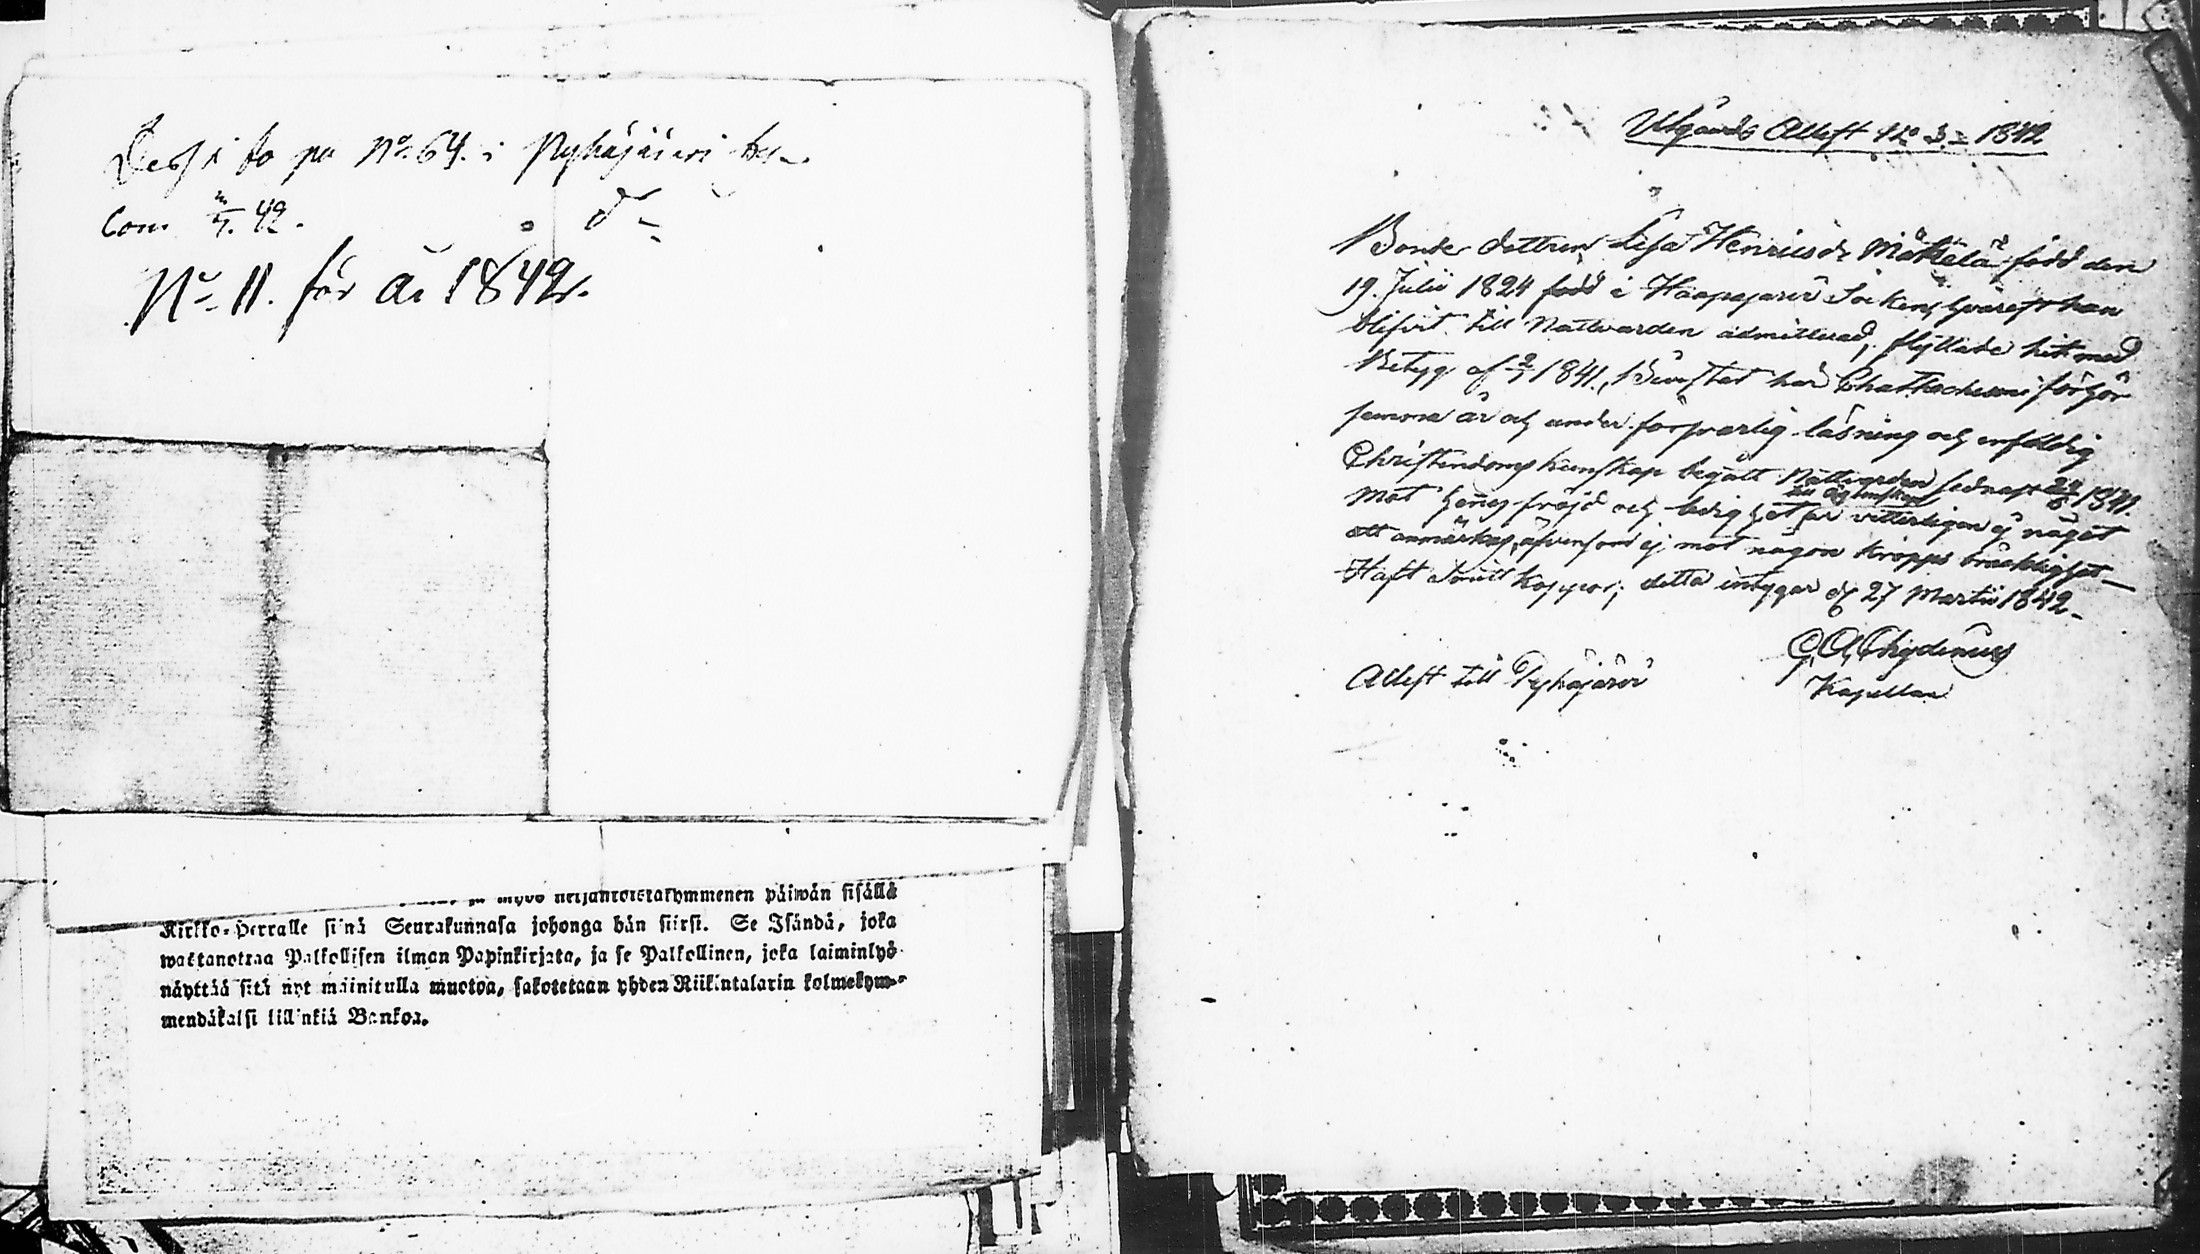 på No. 64. i Pyhäjärvi
Com 42.
No. 11. för år 1842.
neljäntoistakymmenen päiwän sisällä
Kirkko-Herralle siinä Seurakunnasa johonga hän siirsi. Se Isändä, joka
wastanottaa Palkollisen ilman Papinkirjata, ja se Palkollinen, joka laiminlyö
näyttää sitä nyt mainitulla muotoa, sakotetaan yhden Riikintalarin kolmekym-
mendäkaksi killinkiä Bankoa.
Utgånds Attest No 3 = 1842
Bonde dottren Lisa Henricsdr Mäkelä, född den
19. Julii 1824 född i Haapajärvi Socken hvarest han
blifvit till Nattvarden admitterad, flyttade hit med
Betyg af 1841, Bevistat här Chatechismi förhör
samma år och under försvarlig läsning och enfaldig
Christendoms kunskap begått Nattvarden sednast 24/6 1841.
tillÄgtenskap
Mot hennes fräjd och ledighet är vitterligen ej något
att anmärkas, äfvensom ej mot någon kropps bräcklighet
Haft Smitt koppor; detta intygar d. 27 Martii 1842.
G. A. Chydenius
Attest till Pyhäjärvi
Kapellan